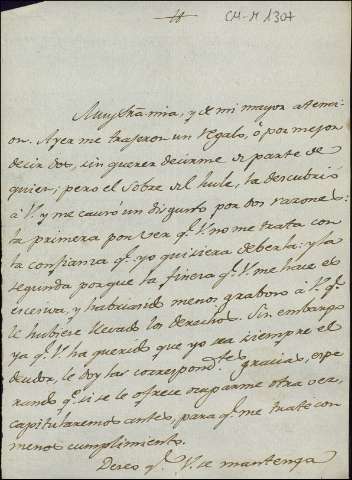 CM-M 1307
Muy Sra. mia, y de mi mayor atenci-
on. Ayer me trajeron un regalo, ò por mejor
decir dos, sin querer decirme de parte de
quien; pero el sobre del hule, la descubriò
à V. y me causò un disgusto por dos razones:
la primera por ver qe. V. no me trata con
la confianza qe. yo quisiera deberla: y la
segunda porque la fineza qe. V. me hace es
escesiva, y habria sido menos graboso à V. qe.
le hubiese llevado los derechos. Sin embargo
ya qe. V. ha querido que yo sea siempre el
deudor, le doy las correspondtes. gracias, espe-
rando qe. si se le ofrece ocuparme otra vez,
capitularemos antes, para qe. me trate con
menos cumplimiento.
Deseo qe. V. se mantenga